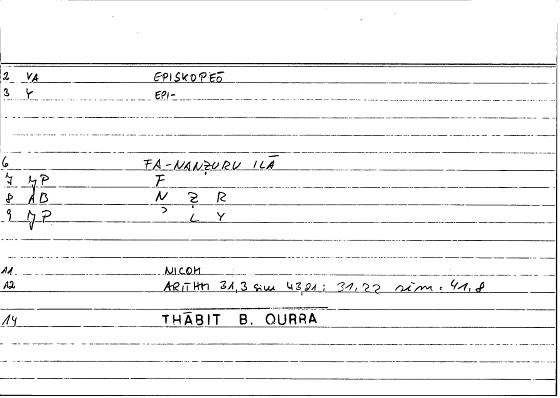 2 VA EPISKOPEŌ
3 Y EPI-
6 FA-NANẒURU ILĀ
7 JP F
8 AB N Ẓ R
9 JP ʾ L Y
11 NICOM
12 ARITHM 31,3 sim 43,21; 31,22 sim. 41,8
14 THĀBIT B. QURRA